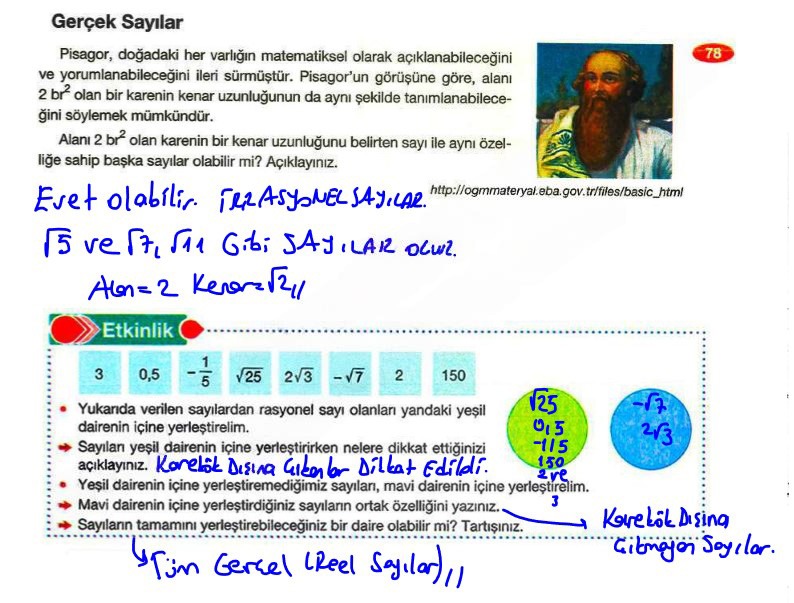 Gerçek Sayılar
Pisagor, doğadaki her varlığın matematiksel olarak açıklanabileceğini
ve yorumlanabileceğini ileri sürmüştür. Pisagor'un görüşüne göre, alanı
2 br² olan bir karenin kenar uzunluğunun da aynı şekilde tanımlanabilece-
ğini söylemek mümkündür.
Alanı 2 br² olan karenin bir kenar uzunluğunu belirten sayı ile aynı özel-
liğe sahip başka sayılar olabilir mi? Açıklayınız.
78
http://ogmmateryal.eba.gov.tr/files/basic_html
Evet olabilir. İRRASYONEL SAYILAR.
√5 ve √7, √11 Gibi SAYILAR olur.
Alan=2 Kenar=√2//
Etkinlik
3 0,5 -1/5 √25 2√3 -√7 2 150
• Yukarıda verilen sayılardan rasyonel sayı olanları yandaki yeşil
dairenin içine yerleştirelim.
Sayıları yeşil dairenin içine yerleştirirken nelere dikkat ettiğinizi
açıklayınız. Karekök Dışına Çıkanlar Dikkat Edildi.
• Yeşil dairenin içine yerleştiremediğimiz sayıları, mavi dairenin içine yerleştirelim.
Mavi dairenin içine yerleştirdiğiniz sayıların ortak özelliğini yazınız.
Sayıların tamamını yerleştirebileceğiniz bir daire olabilir mi? Tartışınız.
√25
0,5
-1/5
150
2 ve
3
-√7
2√3
Karekök Dışına
Çıkmayan Sayılar.
Tüm Gerçel (Reel Sayılar)//